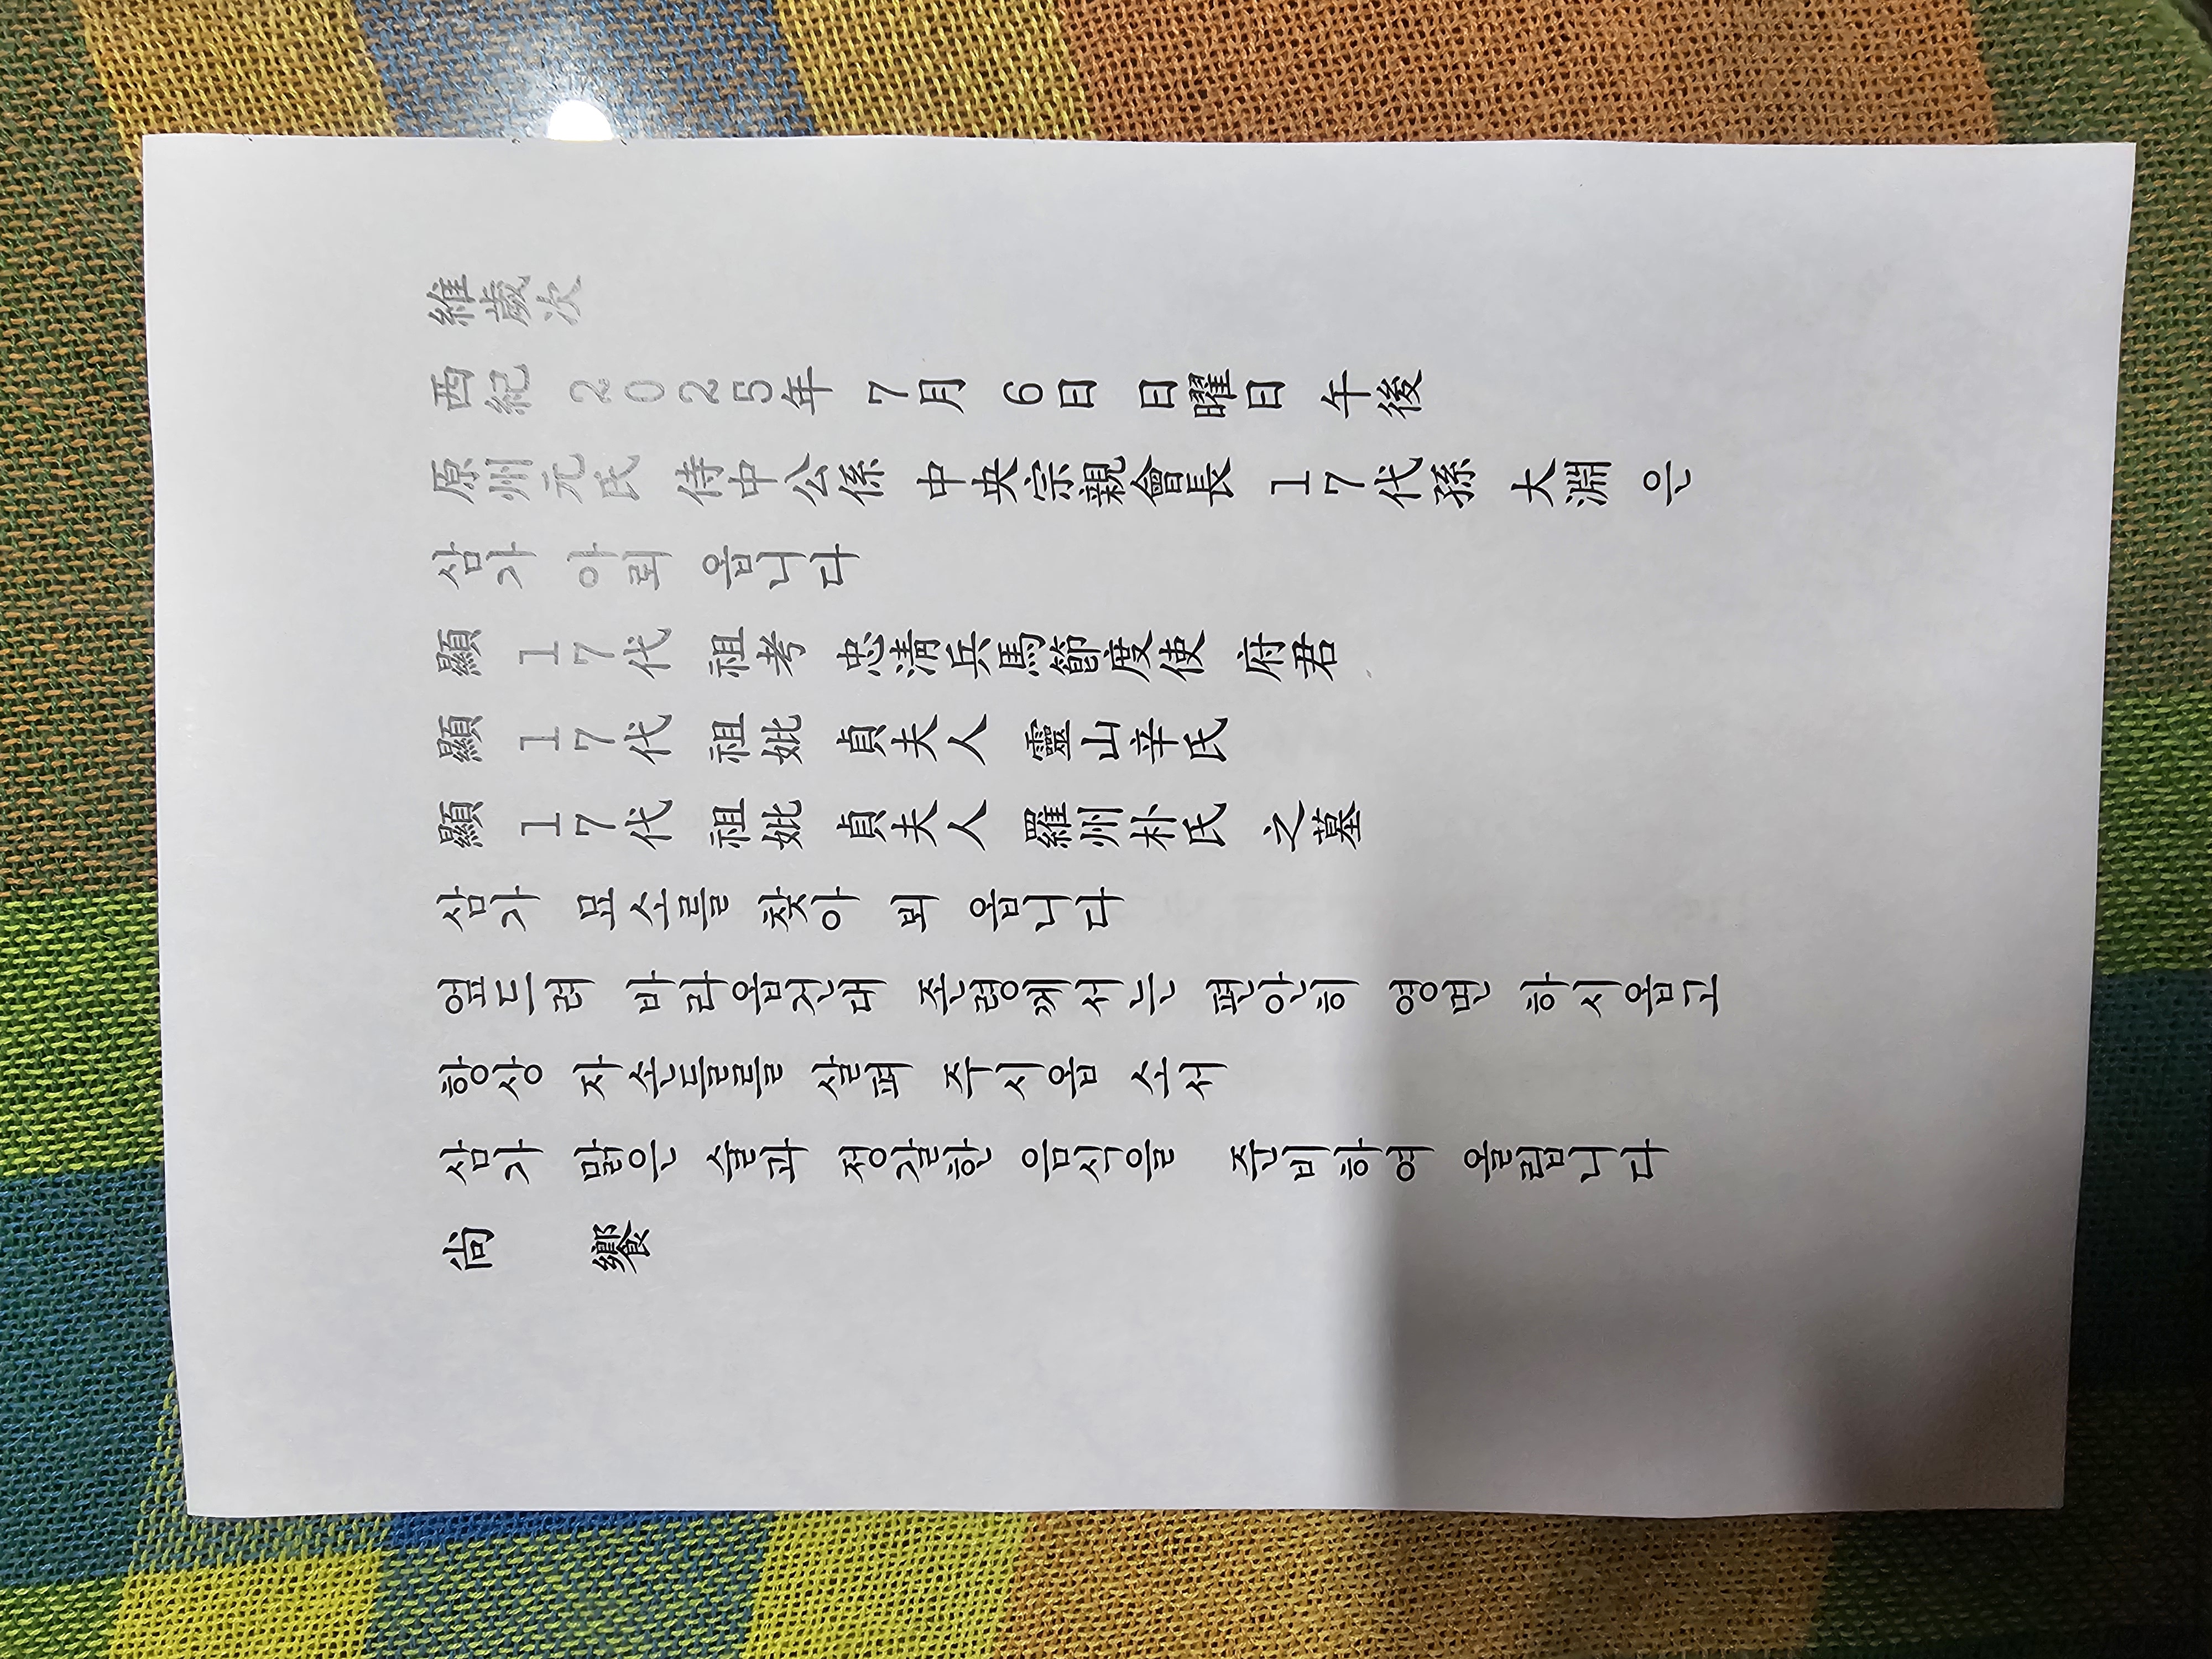 維歲次
西紀 2025年 7月 6日 日曜日 午後
原州元氏 侍中公係 中央宗親會長 17代孫 大淵 은
삼가 아뢰 옵니다
顯 17代 祖考 忠淸兵馬節度使 府君
顯 17代 祖妣 貞夫人 靈山辛氏
顯 17代 祖妣 貞夫人 羅州朴氏 之墓
삼가 묘소를 찾아 뵈 옵니다
엎드려 바라옵건대 존령께서는 편안히 영면 하시옵고
항상 자손들을 살펴 주시옵 소서
삼가 맑은 술과 정갈한 음식을 준비하여 올립니다
尙 饗